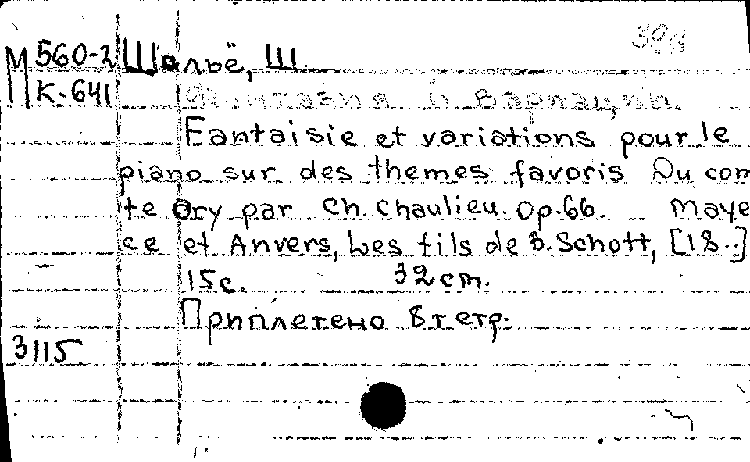 М 560-2 Шольё, Ш.
К-641 Фантазия и вариации.
Fantaisie et variations pour le
piano sur des themes favoris Du com
te Ory par Ch. Chaulieu. Op.66. Maye
ce et Anvers, Les fils de B. Schott, [18..]
15с. 32 cm.
Приплетено 8
3115